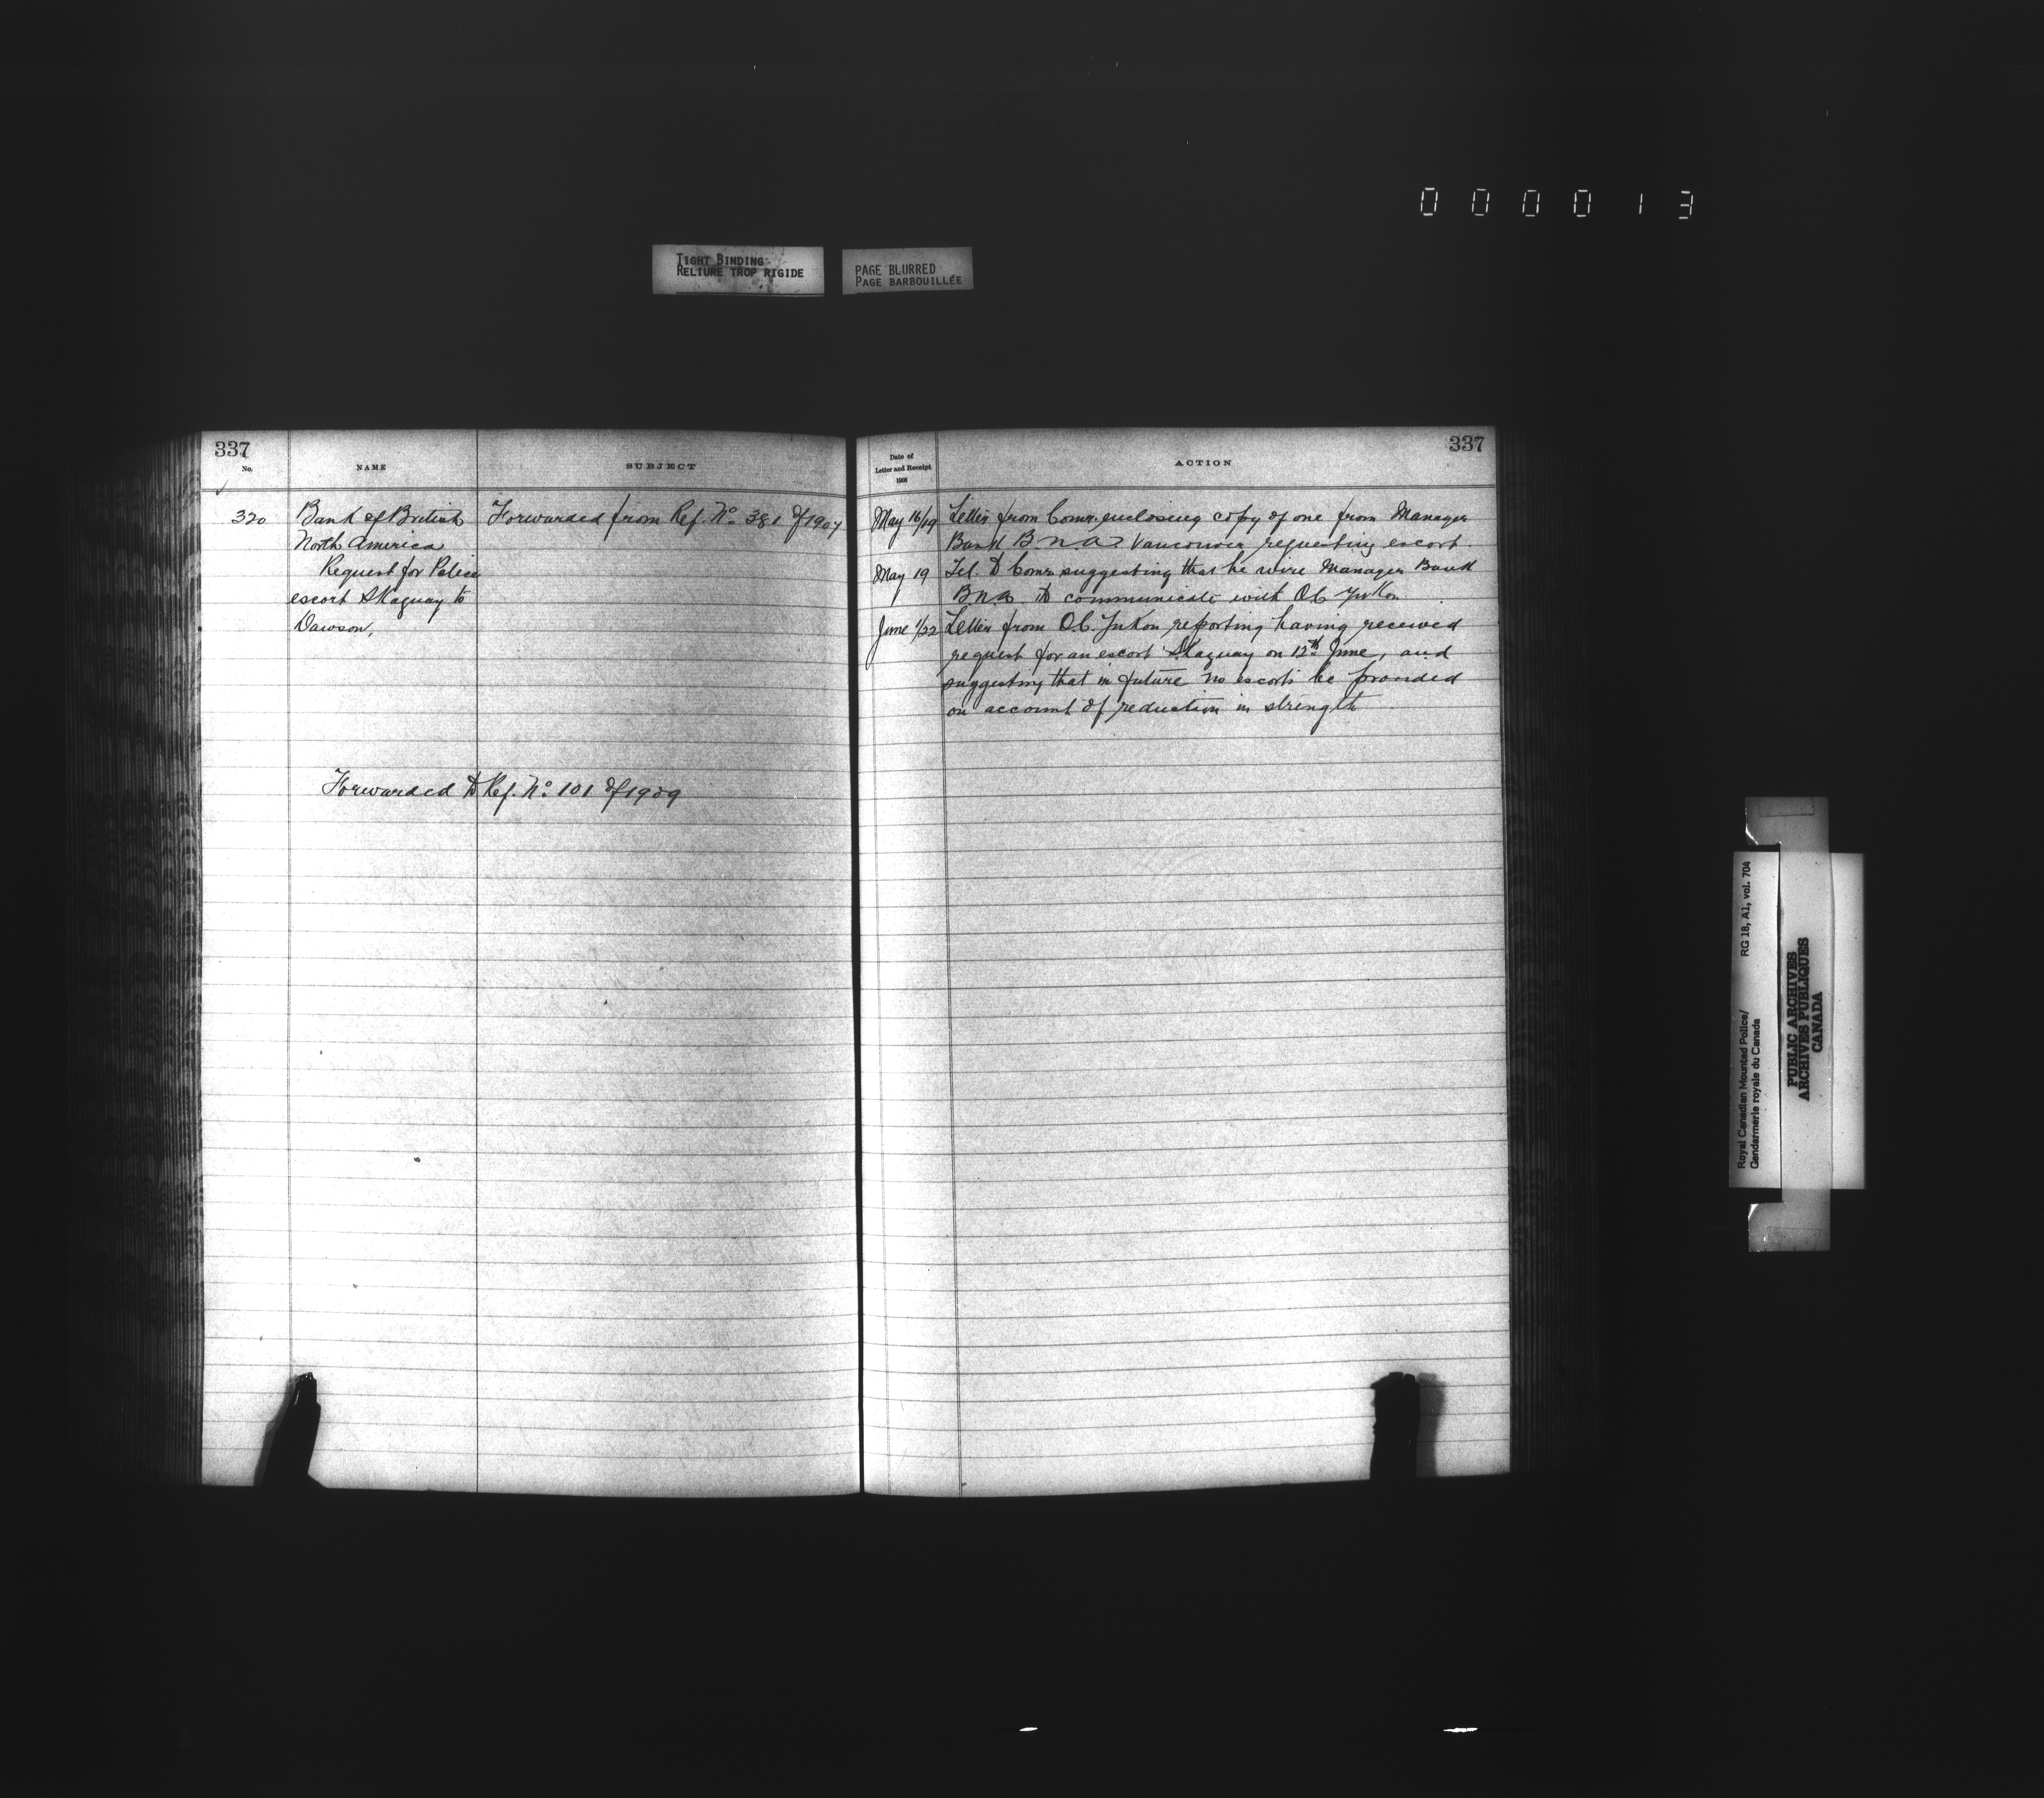 0 0 0 0 1 3
TIGHT BINDING
RELIURE TROP RIGIDE
PAGE BLURRED
PAGE BARBOUILLÉE
337
No.
NAME
SUBJECT
320
Bank of British
North America
Request for Police
escort Skaguay to
Dawson,
Forwarded from Ref. No. 381 of 1907
Forwarded to Ref. No. 101 of 1909
337
Date of
Letter and Receipt
1908
ACTION
May 16/19 Letter from Comr. enclosing copy of one from Manager
Bank B.N.A. Vancouver requesting escort.
May 19 Tel. to Comr. suggesting that he wire Manager Bank
B.N.A. to communicate with O.C. Yukon
June 1/22 Letter from O.C. Yukon reporting having received
request for an escort Skaguay on 12th June, and
suggesting that in future no escorts be provided
on account of reduction in strength
Royal Canadian Mounted Police/ RG 18, A1, vol. 704
Gendarmerie royale du Canada
PUBLIC ARCHIVES
ARCHIVES PUBLIQUES
CANADA